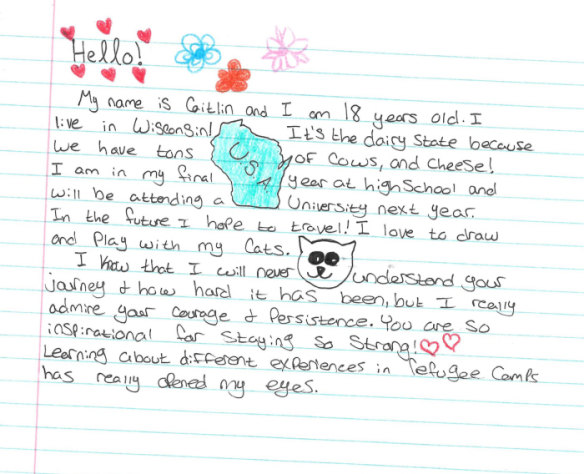 Hello!
My name is Caitlin and I am 18 years old. I
live in Wisconsin! It's the dairy State because
we have tons of cows, and cheese!
USA
I am in my final year at highschool and
will be attending a University next year.
In the future I hope to travel! I love to draw
and Play with my Cats.
I know that I will never understand your
journey & how hard it has been, but I really
admire your courage & Persistence. You are so
inspirational for staying so strong!
Learning about different experiences in refugee Camps
has really opened my eyes.